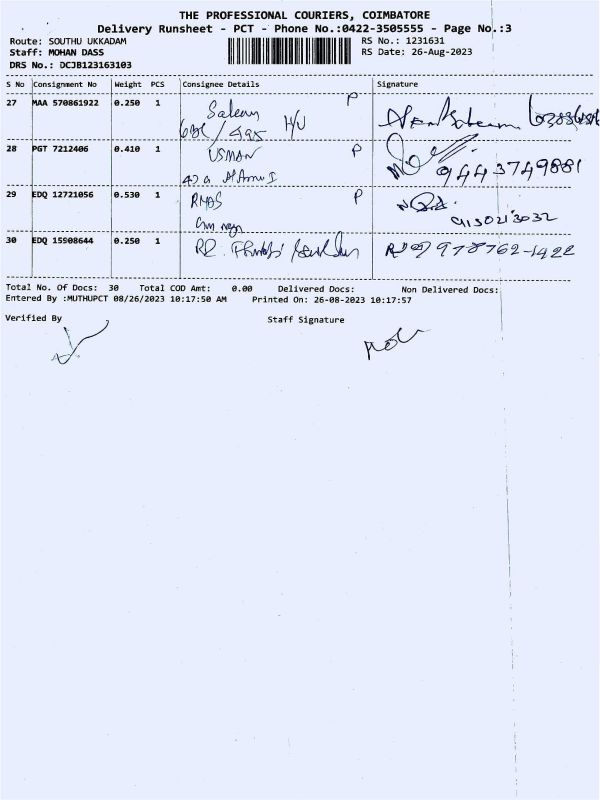 THE PROFESSIONAL COURIERS, COIMBATORE
Delivery Runsheet - PCT - Phone No.:0422-3505555 - Page No.:3
Route: SOUTHU UKKADAM RS No.: 1231631
Staff: MOHAN DASS RS Date: 26-Aug-2023
DRS No.: DCJB123163103
S No Consignment No Weight PCS Consignee Details Signature
27 MAA 570861922 0.250 1 Saleem P
28 PGT 7212406 0.410 1 USMAN P
9443749881
29 EDQ 12721056 0.530 1 RMAS P
9130213032
30 EDQ 15908644 0.250 1
978762-1422
Total No. Of Docs: 30 Total COD Amt: 0.00 Delivered Docs: Non Delivered Docs:
Entered By :MUTHUPCT 08/26/2023 10:17:50 AM Printed On: 26-08-2023 10:17:57
Verified By Staff Signature